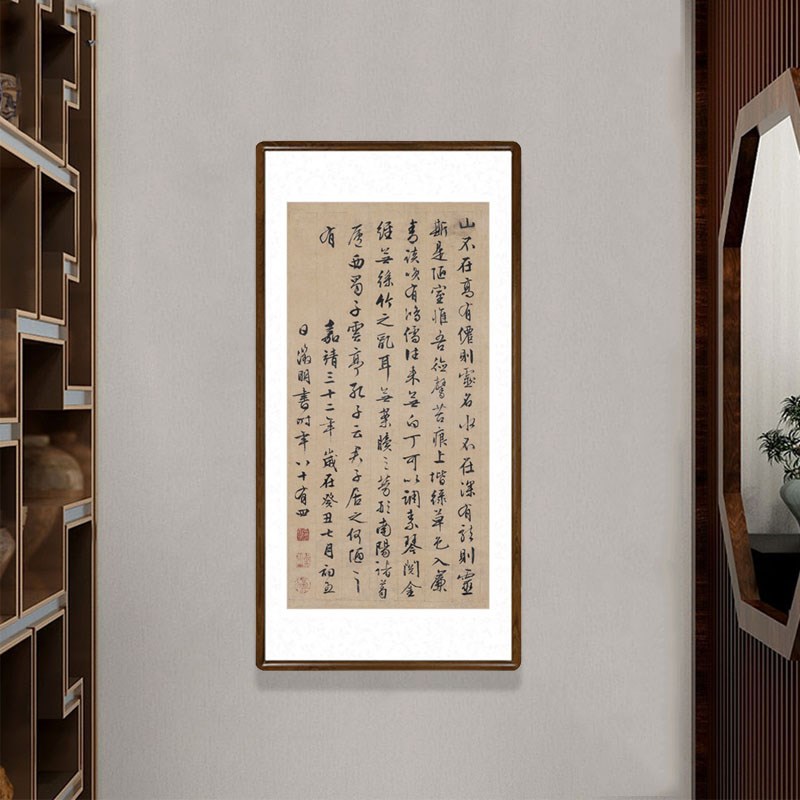 山不在高有僊則靈名水不在深有龍則靈
斯是陋室惟吾德馨苔痕上堦綠草色入簾
青談咲有鴻儒往来無白丁可以調素琴閱金
經無絲竹之亂耳無案牘之勞形南陽諸葛
廬西蜀子雲亭孔子云夫子居之何陋之
有
嘉靖三十二年歲在癸丑七月初五
日徵明書時年八十有四